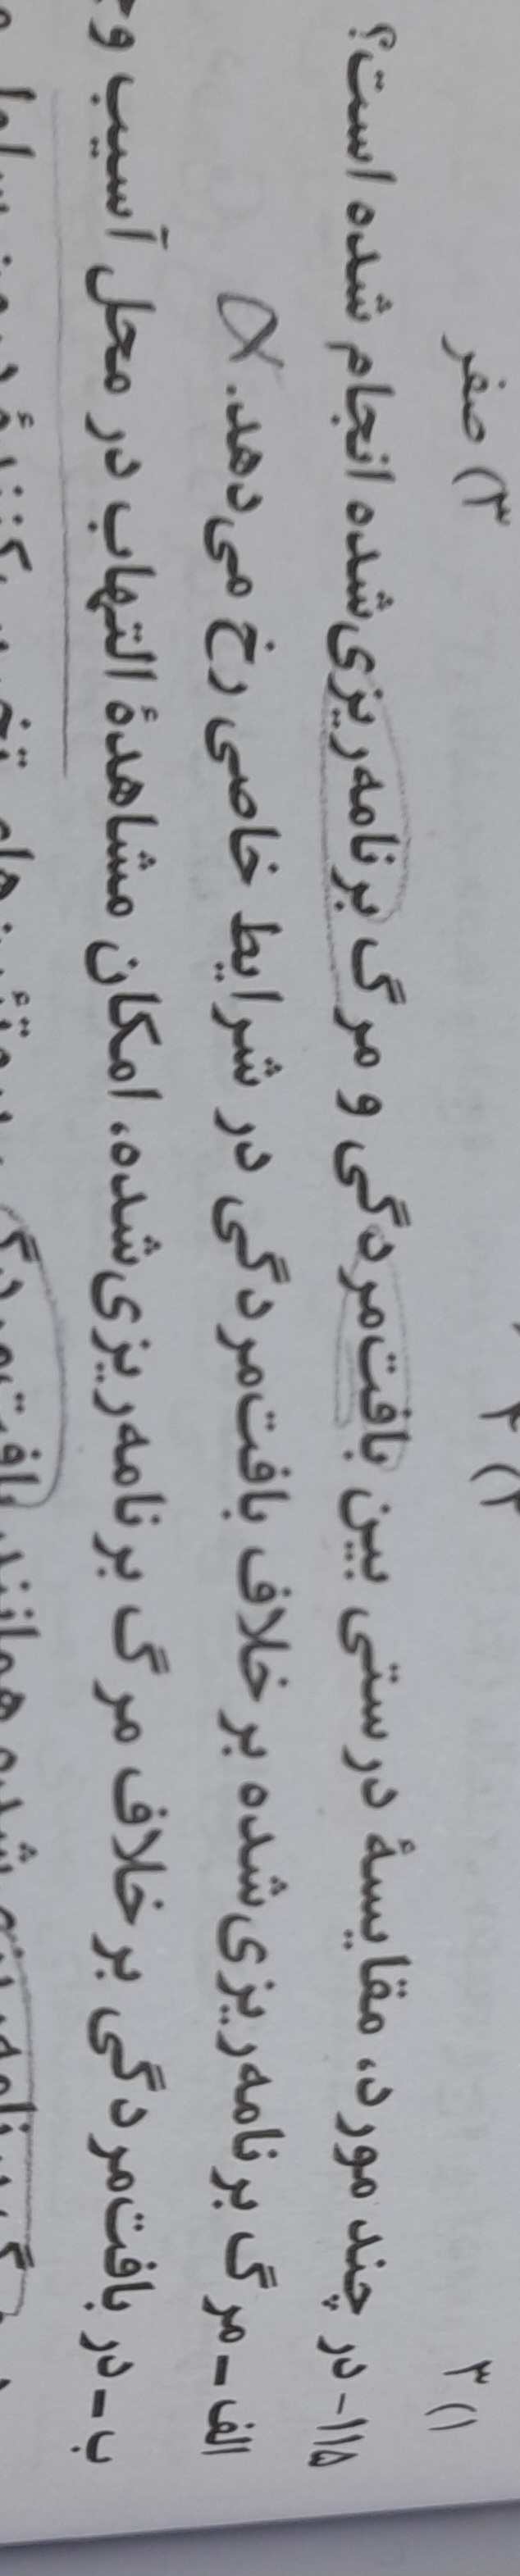 ۱) ۳ ۲) ۳) صفر
۱۱۵- در چند مورد، مقایسهٔ درستی بین بافت‌مردگی و مرگ برنامه‌ریزی‌شده انجام شده است؟
الف - مرگ برنامه‌ریزی‌شده بر خلاف بافت‌مردگی در شرایط خاصی رخ می‌دهد.
ب - در بافت‌مردگی بر خلاف مرگ برنامه‌ریزی‌شده، امکان مشاهدهٔ التهاب در محل آسیب